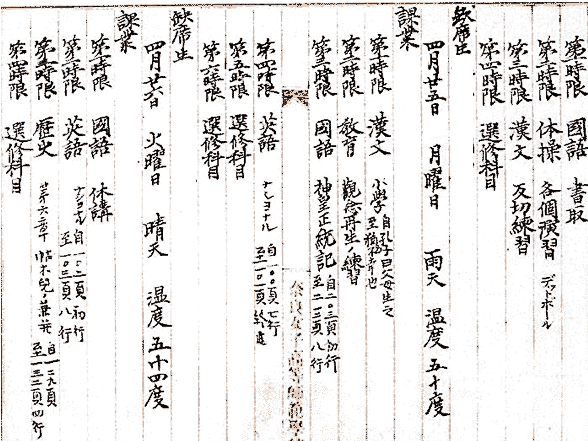 第一時限 國語 書取
第二時限 体操 各個演習 デッドボール
第三時限 漢文 反切練習
第四時限 選修科目
欠席生
四月廿五日 月曜日 雨天 温度五十度
課業
第一時限 漢文 小学 自孔子曰父母生之 至 也
第二時限 教育 觀念再生ノ練習
第三時限 國語 神皇正統記 自二〇三頁初行 至二一三頁八行
第四時限 英語 ナショナル 自一〇〇頁七行 至一〇二頁終迄
第五時限 選修科目
第六時限 選修科目
欠席生
四月廿六日 火曜日 晴天 温度五十四度
課業
第一時限 國語 休講
第二時限 英語 ナショナル 自一〇二頁初行 至一〇三頁八行
第三時限 歴史 第六章 自一二九頁 至一三二頁四行
第四時限 選修科目
奈良女子高等師範学